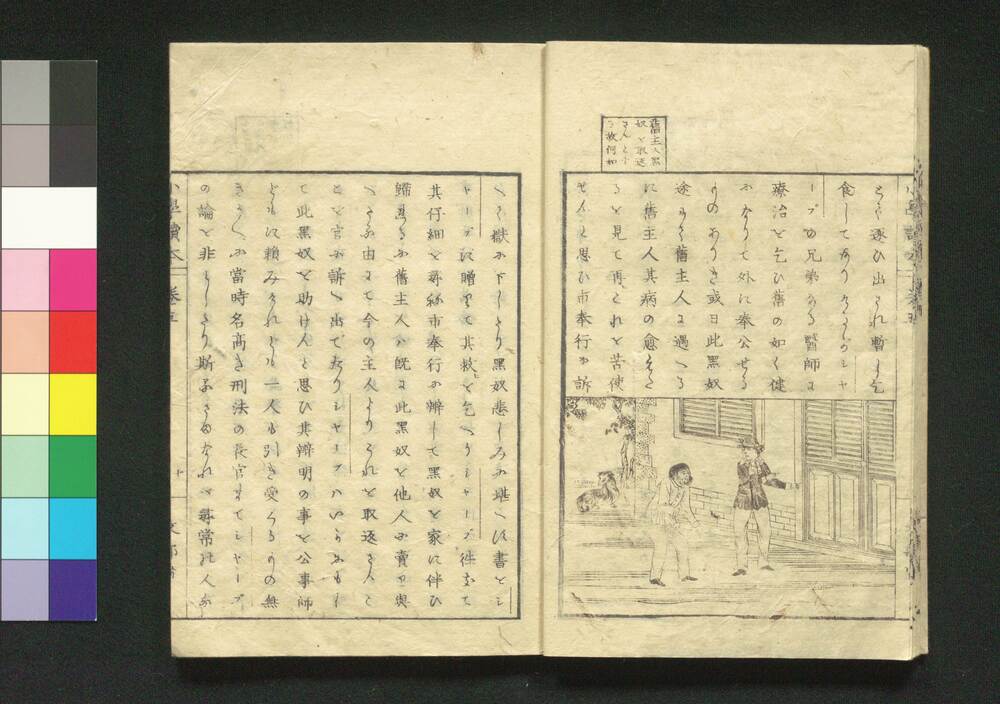 舊主人黑
奴を取返
さんとす
る故何如
とらく逐ひ出され暫し乞
食してありけるがシャ
ープの兄弟なる醫師に
療治を乞ひ舊の如く健
になりて外に奉公せる
ものありき或日此黑奴
途にて舊主人に遇へる
に舊主人其病の愈えた
るを見て再これを苦使
せんと思ひ市奉行に訴
へて獄に下したり黑奴悲しみに堪へず書をシ
ャープに贈りて其救を乞へりシャープ徃きて
其仔細を尋ね市奉行に辨して黑奴を家に伴ひ
歸りたるに舊主人は既に此黑奴を他人に賣り與
へたる由にて今の主人よりこれを取返さんこ
とを官に訴へ出でたりシャープハいかにもし
て此黑奴を助けんと思ひ其辨明の事を公事師
どもに賴みけれども一人も引き受くるもの無
きのみか當時名高き刑法の長官までシャープ
の論を非としたり斯るさまなれば尋常の人な
小學讀本 卷五